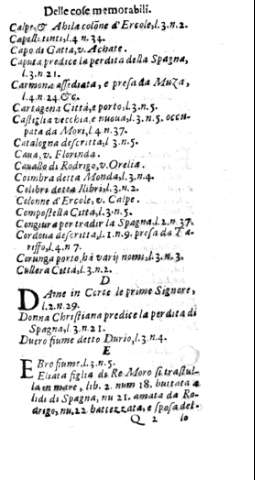 Delle cose memorabili.
Calpe, & Abila colōne d'Ercole, l.3.n.2.
Capelli tinti, l.4 n.34.
Capo di Gatta, v. Achate.
Caputa predice la perdita della Spagna,
l.3.n 21.
Carmona assediata, e presa da Muza,
l.4.n 24 &c.
Cartagena Città, e porto, l.3.n.5.
Castiglia vecchia, e nuova, l.3.n.5. occu-
pata da Mori, l.4 n.37.
Catalogna descritta, l.3.n.5.
Caua, v. Florinda.
Cauallo di Rodrigo, v. Orelia.
Coimbra detta Monda, l.3.n.4.
Colibro detta Ilibri, l.3.n.2.
Colonne d'Ercole, v. Calpe.
Compostella Città, l.3.n.5.
Congiura per tradir la Spagna, l.2.n.37.
Cordoua descritta, l.1.n.9. presa da Ta-
riffo, l.4.n 7.
Corunga porto, hà varij nomi, l.3.n.3.
Cullera Città, l.3.n.2.
D
DAme in Corte le prime Signore,
l.2.n.29.
Donna Christiana predice la perdita di
Spagna, l.3.n 21.
Duero fiume detto Durio, l.3.n.4.
E
EBro fiume, l.3.n.5.
Eliata figlia di Re Moro si trastul-
la in mare, lib. 2. num 18. buttata a
lidi di Spagna, nu 21. amata da Ro-
drigo, nu.22 battezzata, e sposa del-
Q 2 lo